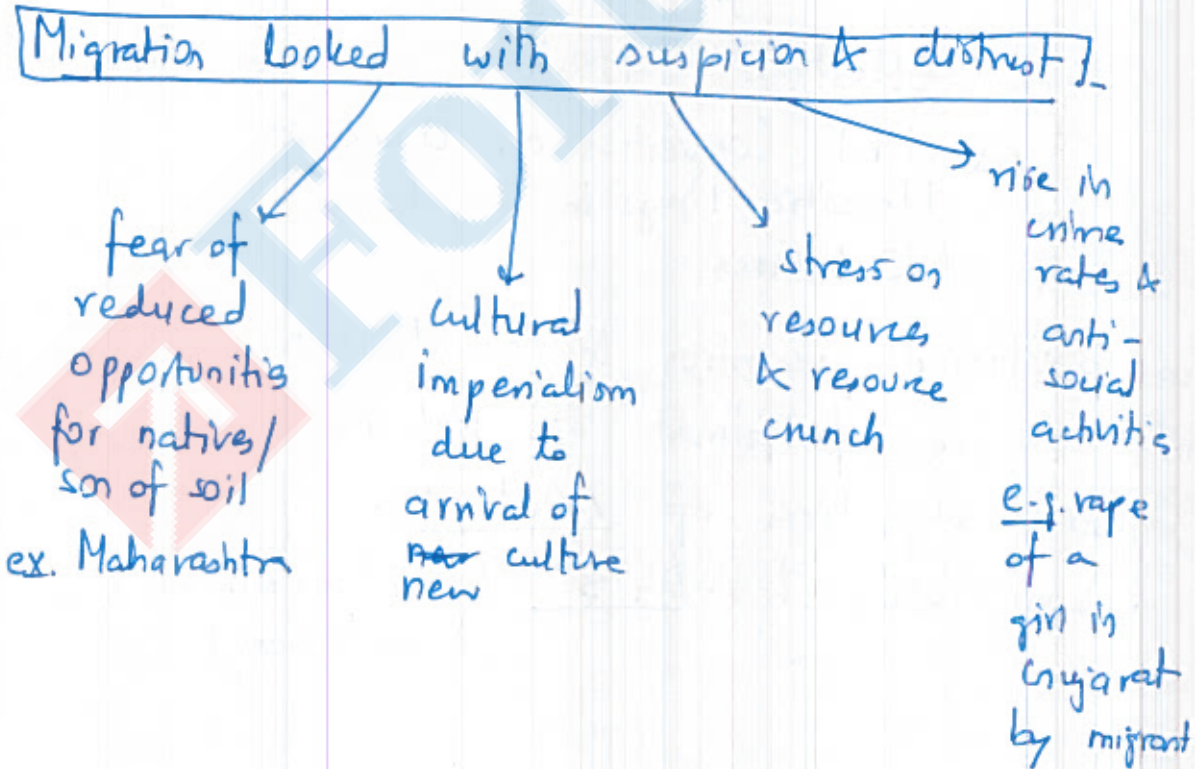 Migration looked with suspicion & distrust
fear of
reduced
opportunitis
for natives/
son of soil
ex. Maharashtra
cultural
imperialism
due to
arrival of
new culture
stress on
resources
& resource
crunch
rise in
crime
rates &
anti-
social
activitis
e.g. rape
of a
girl in
Gujarat
by migrant
For